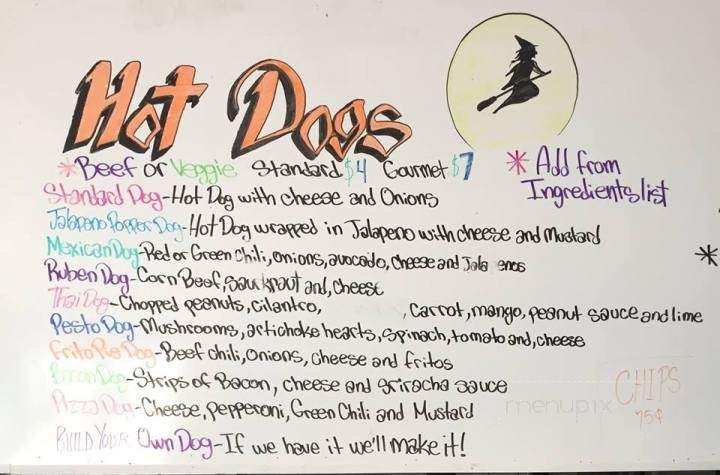 Hot Dogs
*Beef or Veggie Standard $4 Gourmet $7 * Add from
Ingredients list
Standard Dog-Hot Dog with cheese and Onions
Jalapeno Popper Dog-Hot Dog wrapped in Jalapeno with cheese and Mustard
Mexican Dog-Red or Green Chili, onions, avocado, cheese and Jala enos
*
Ruben Dog-Corn Beef, Saurkraut and, cheese
Thai Dog-Chopped peanuts, cilantro, , carrot, mango, peanut sauce and lime
Pesto Dog-Mushrooms, artichoke hearts, spinach, tomato and, cheese
Frito Pie Dog-Beef chili, onions, cheese and fritos
Bacon Dog-Strips of Bacon, cheese and sriracha sauce
CHIPS
75¢
Pizza Dog-Cheese, pepperoni, Green Chili and Mustard
menupix
BUILD YOUR Own Dog-If we have it we'll make it!